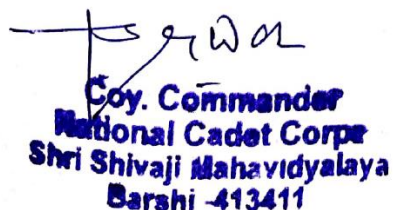 Coy. Commander
National Cadet Corps
Shri Shivaji Mahavidyalaya
Barshi -413411